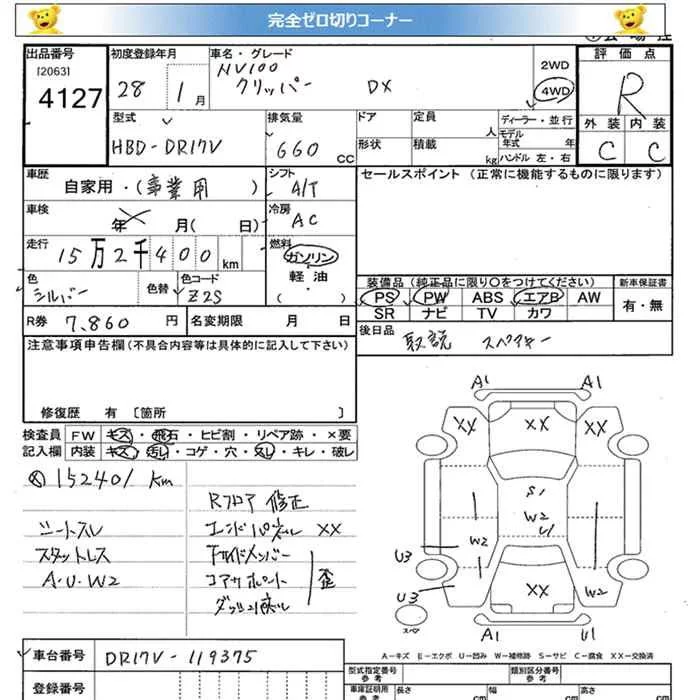 完全ゼロ切りコーナー
出品番号
[2063]
4127
初度登録年月
28 1月
車名・グレード
NV100
クリッパー DX
2WD
4WD
評価点
R
外装 内装
C C
型式
HBD-DR17V
排気量
660 CC
ドア
形状
定員
人
積載
kg
ディーラー・並行
モデル
年式 年
ハンドル 左・右
車歴
自家用・(事業用)
シフト
A/T
セールスポイント（正常に機能するものに限ります）
車検
年 月( 日)
冷房
AC
走行
15万2千400km
燃料
ガソリン
軽・油
( ・ )
色
シルバー
色替
色コード
Z2S
装備品（純正品に限り〇をつけてください）
新車保証書
PS PW ABS エアB AW
SR ナビ TV カワ
有・無
R券 7,860 円
名変期限 月 日
後日品
取説 スペアキー
注意事項申告欄（不具合内容等は具体的に記入して下さい）
修復歴 有 〔箇所 〕
検査員
記入欄
FW キズ・飛石・ヒビ割・リペア跡・×要
内装 キズ・汚レ・コゲ・穴・スレ・キレ・破レ
152401 km
シートスレ
スタットレス
A・U・W2
Rフロア 修正
エンドパネル XX
サイドメンバー
コアサポート
歪
A1 A1
XX XX XX
S1
W2
U1
W2
U3
U3
XX
W2
スペア
A1 U1
A－キズ E－エクボ U－凹み W－補修跡 S－サビ C－腐食 XX－交換済
車台番号
DR17V-119375
登録番号
型式指定番号
参考
類別区分番号
参考
車庫証明用
参考
長さ cm
幅 cm
高さ cm